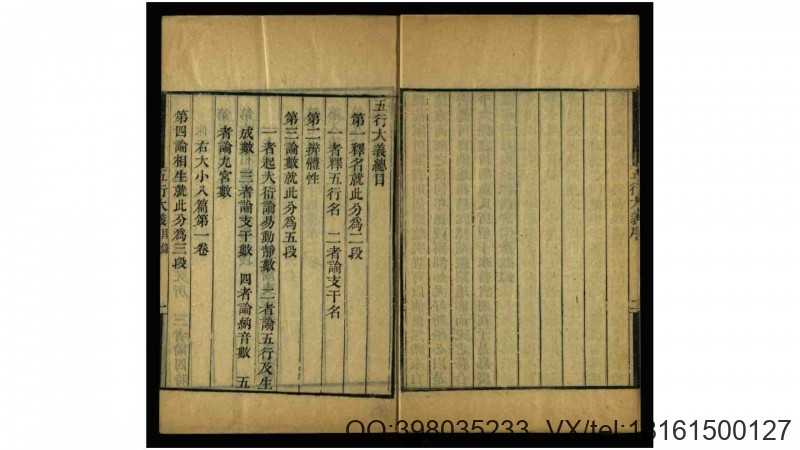 五行大義總目
第一釋名就此分爲二段
一者釋五行名 二者論支干名
第二辨體性
第三論數就此分爲五段
一者起大衍論易動靜數 二者論五行及生
成數 三者論支干數 四者論納音數 五
者論九宮數
右大小八篇第一卷
第四論相生就此分爲三段
五行大義
一
五行大義序
QQ:398035233 VX/tel:13161500127